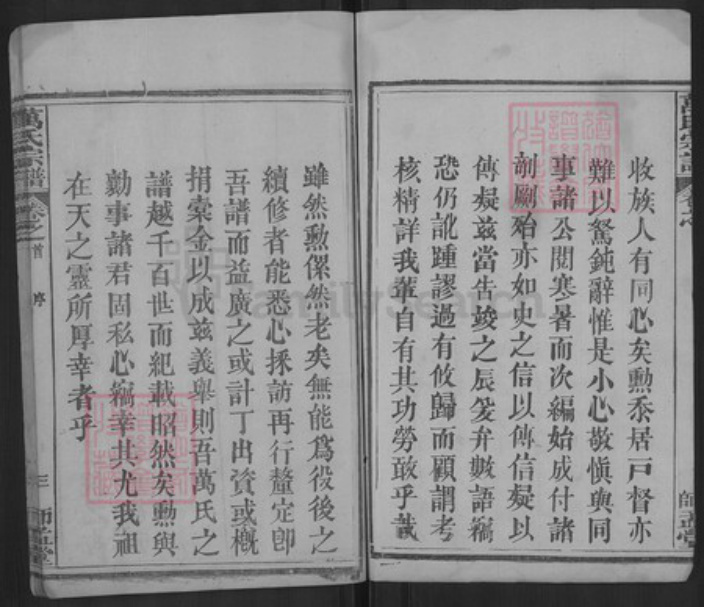 收族人有同心矣勲忝居戸督亦
難以駑鈍辭惟是小心敬慎與同
事諸公閲寒暑而次編始成付諸
剞劂殆亦如史之信以傳信疑以
傳疑兹當告竣之辰爰弁數語編
恐仍訛踵謬過有攸歸而顧謂考
核精詳我輩自有其功勞敢乎哉
萬氏宗譜
師孟堂
雖然勲傫然老矣無能爲役後之
續修者能悉心採訪再行釐定即
吾譜而益廣之或計丁出資或概
捐橐金以成兹義舉則吾萬氏之
譜越千百世而紀載昭然矣勲與
勷事諸君固私心竊幸其尤我祖
在天之靈所厚幸者乎
萬氏宗譜 卷之
首 序
三 師孟堂
FamilySearch